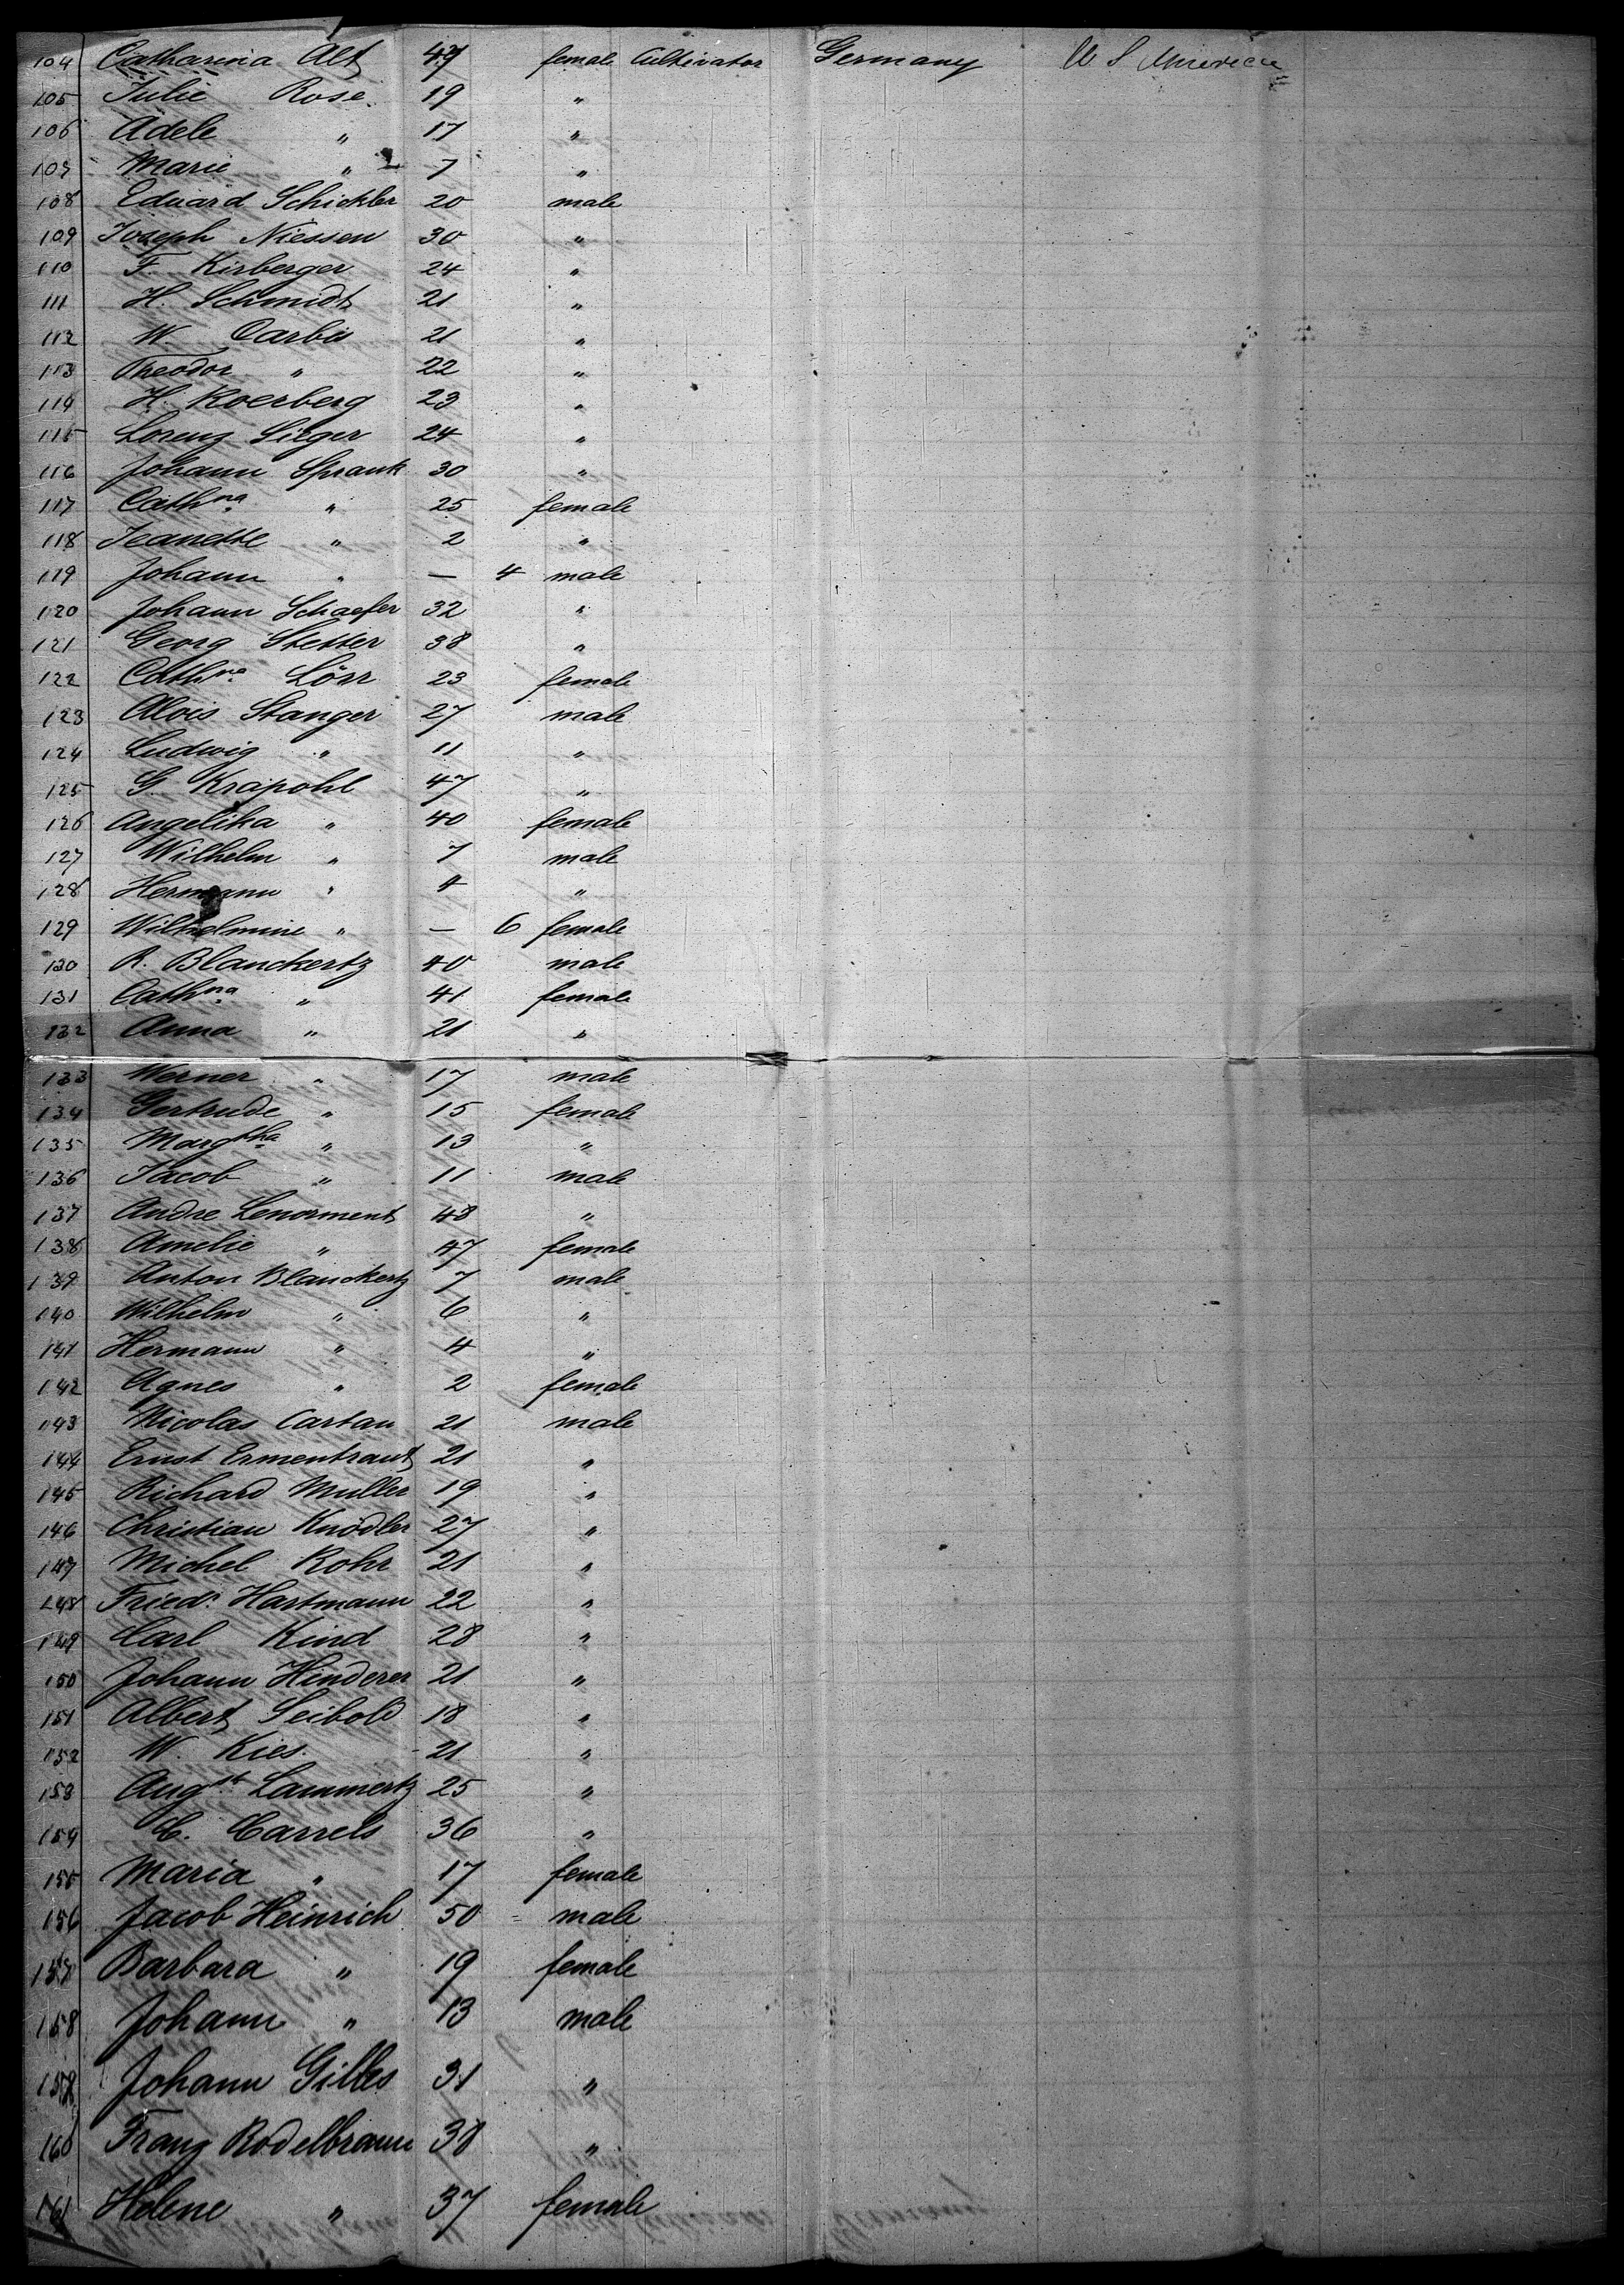 104 Catharina Alt 49 female Cultivator Germany U S America
105 Julie Rose 19 "
106 Adele " 17 "
107 Marie " 7 "
108 Eduard Schickler 20 male
109 Joseph Niessen 30 "
110 F. Kirberger 24 "
111 H. Schmidt 21 "
112 W. 21 "
113 Theodor " 22 "
114 H. Koerberg 23 "
115 Lorenz Sieger 24 "
116 Johann Sprank 30 "
117 Cathna " 25 female
118 Jeanette " 2 "
119 Johann " — 4 male
120 Johann Schaefer 32 "
121 Georg Stetter 38 "
122 Cathna Lörr 23 female
123 Alois Stanger 27 male
124 Ludwig " 11 "
125 G. Krapohl 47 "
126 Angelika " 40 female
127 Wilhelm " 7 male
128 Hermann " 4 "
129 Wilhelmine " — 6 female
130 R. Blanckertz 40 male
131 Cathna " 41 female
132 Anna " 21 "
133 Werner " 17 male
134 Gertrude " 15 female
135 Margtha " 13 "
136 Jacob " 11 male
137 Andre Lenorment 48 "
138 Amelie " 47 female
139 Anton Blanckertz 7 male
140 Wilhelm " 6 "
141 Hermann " 4 "
142 Agnes " 2 female
143 Nicolas Cartan 21 male
144 Ernst Ermentraut 21 "
145 Richard Muller 19 "
146 Christian Knödler 27 "
147 Michel Rohr 21 "
148 Fried. Hartmann 22 "
149 Carl Kind 28 "
150 Johann Hinderer 21 "
151 Albert Seibold 18 "
152 W. Kies. 21 "
153 Augst Lammertz 25 "
154 C. Carrels 36 "
155 Maria " 17 female
156 Jacob Heinrich 50 male
157 Barbara " 19 female
158 Johann " 13 male
159 Johann Gilles 31 "
160 Franz Rodelbraun 38 "
161 Helene " 37 female